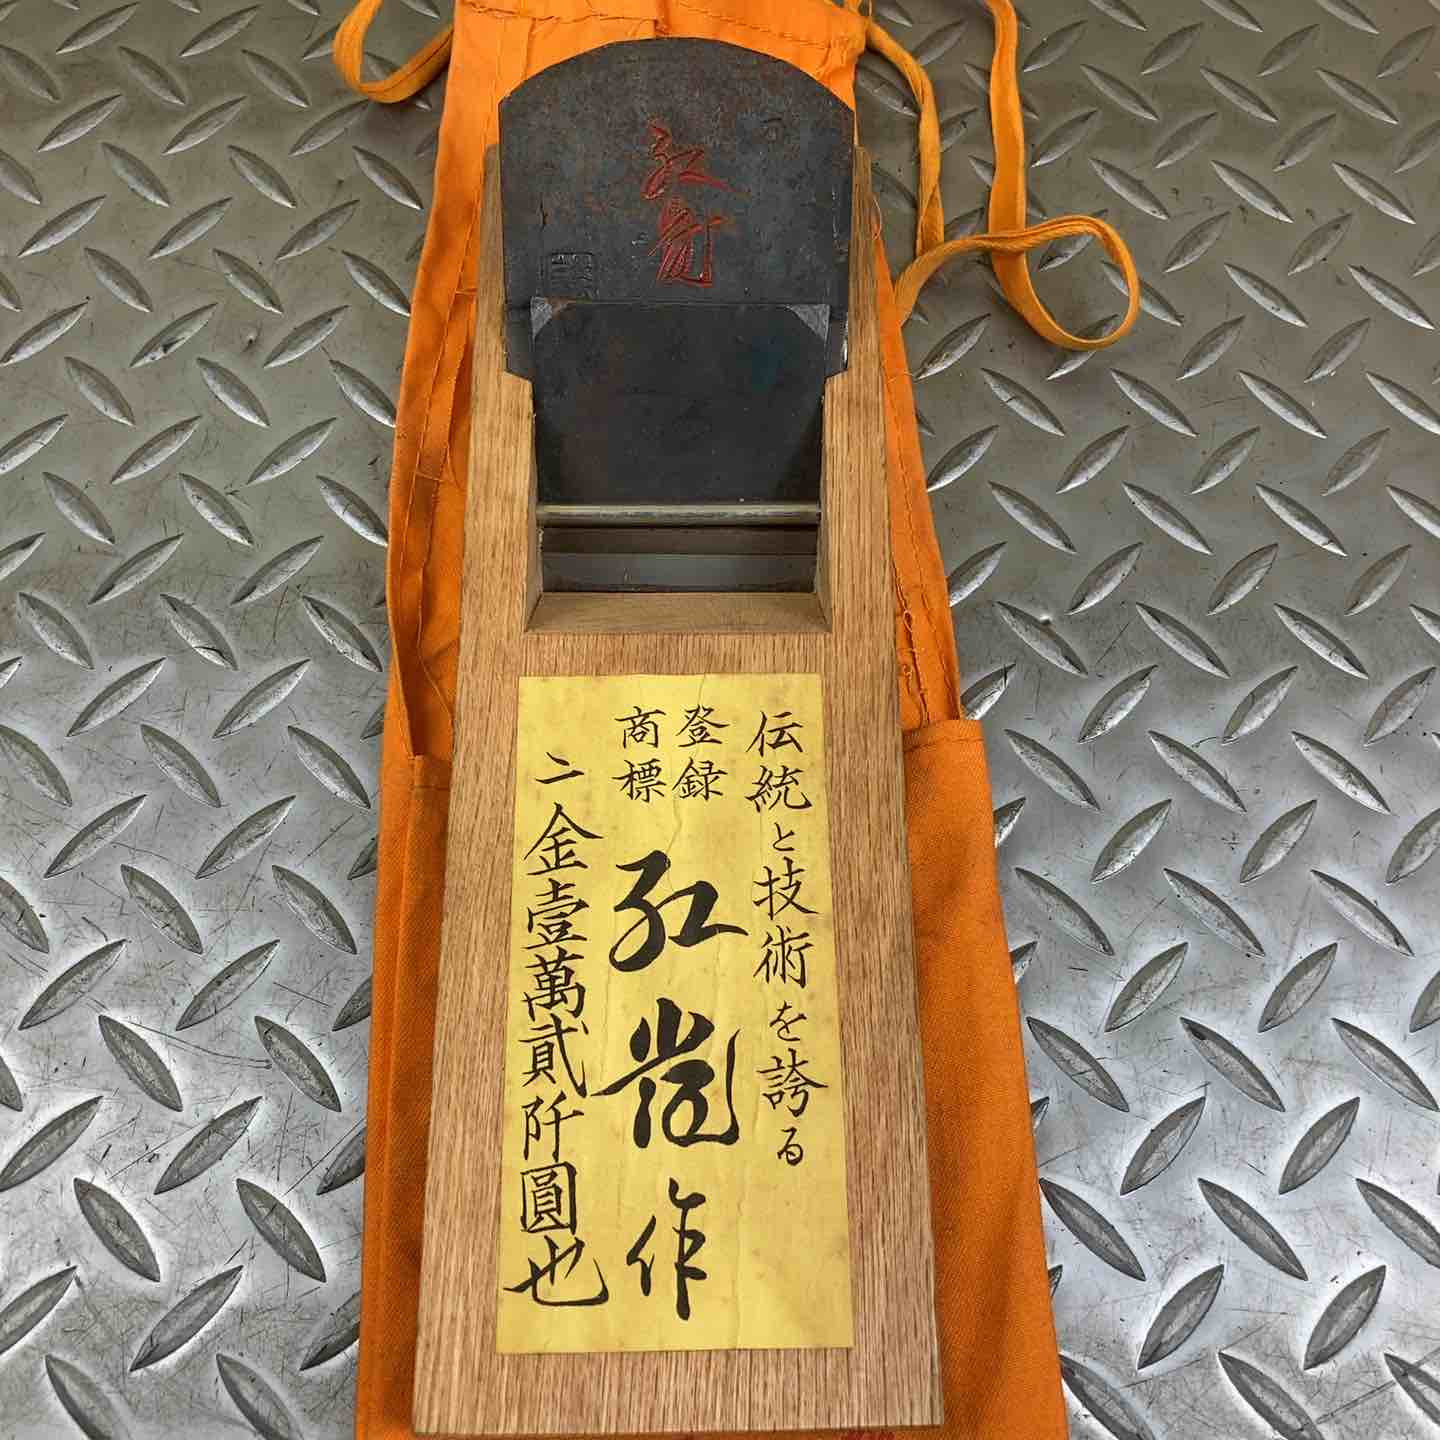 紅凱
伝統と技術を誇る
登録
商標
紅凱作
二金壹萬貳阡圓也